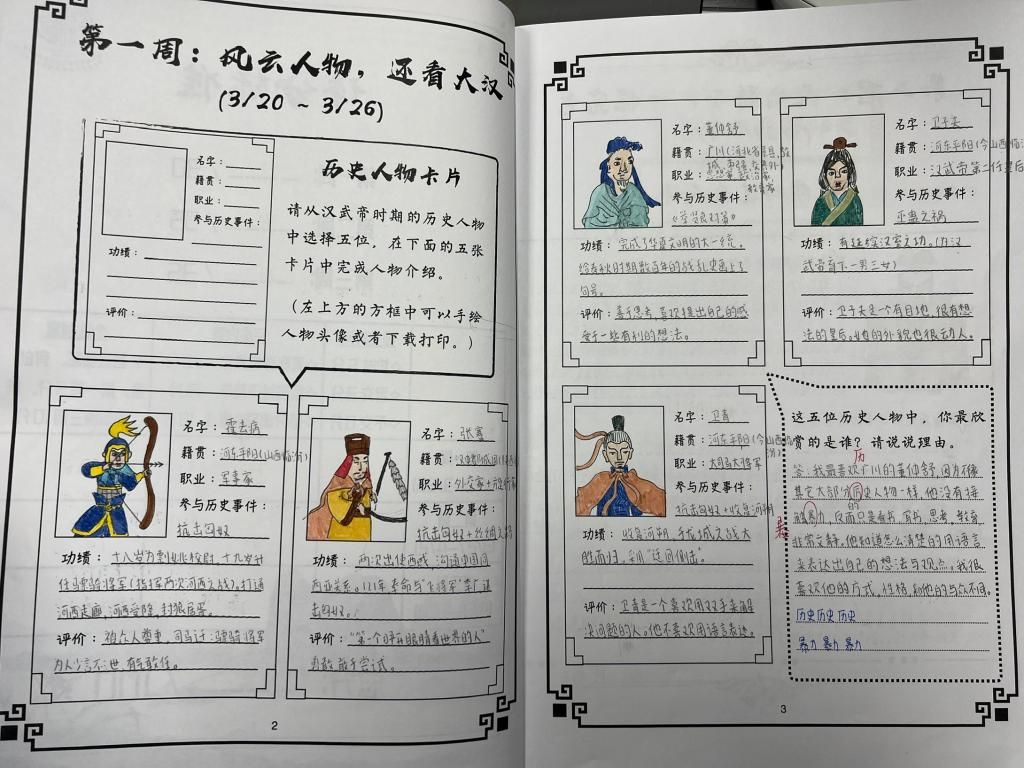 第一周：风云人物，还看大汉
(3/20 ~ 3/26)
名字：
籍贯：
职业：
参与历史事件：
功绩：
评价：
历史人物卡片
请从汉武帝时期的历史人物
中选择五位，在下面的五张
卡片中完成人物介绍。
（左上方的方框中可以手绘
人物头像或者下载打印。）
名字：霍去病
籍贯：河东平阳(山西临汾)
职业：军事家
参与历史事件：
抗击匈奴
功绩：十八岁为剽姚校尉，十九岁升
任骠骑将军(指挥两次河西之战)。打通
河西走廊，河西受降，封狼居胥。
评价：被众人尊重，司马迁：骠骑将军
为人少言不泄，有气敢任。
名字：张骞
籍贯：汉中郡成固
职业：外交家+
参与历史事件：
抗击匈奴+丝绸之路
功绩：两次出使西域，沟通中国同
西亚关系。奉命与"飞将军"李广
击匈奴。
评价："第一个睁开眼睛看世界的人"
勇敢，敢于尝试。
2
名字：董仲舒
籍贯：广川(河北省景县，
职业：思想家，政治家，
教育家
参与历史事件：
《举贤良对策》
功绩：完成了华夏文明的大一统，
给春秋时期数百年的战乱史画上了
句号。
评价：善于思考，喜欢提出自己的感
受于一些有利的想法。
名字：卫子夫
籍贯：河东平阳(今山西临汾
职业：汉武帝第二任皇后
参与历史事件：
巫蛊之祸
功绩：有延续汉室之功。(为汉
武帝育下一男三女)
评价：卫子夫是个有目地，很有想
法的皇后。她的外貌也很动人。
名字：卫青
籍贯：河东平阳(今山西临
汾)
职业：大司马大将军
参与历史事件：
抗击匈奴+收复河朔
功绩：收复河朔，龙城之战大
胜而归，采用"迂回侧击"
评价：卫青是一个喜欢用双手来解
决问题的人。他不喜欢用语言表达。
这五位历史人物中，你最欣
赏的是谁？请说说理由。
历
答：我最喜欢广川的董仲舒，因为不像
其它大部分历史人物一样，他没有接
触暴力，反而只是看书、写书、思考、教育
的
暴
非常文静。他知道怎么清楚的用语言
来表达出自己的想法与观点。我很
喜欢他的方式，性格，和他的与众不同。
历史 历史 历史
暴力 暴力 暴力
3